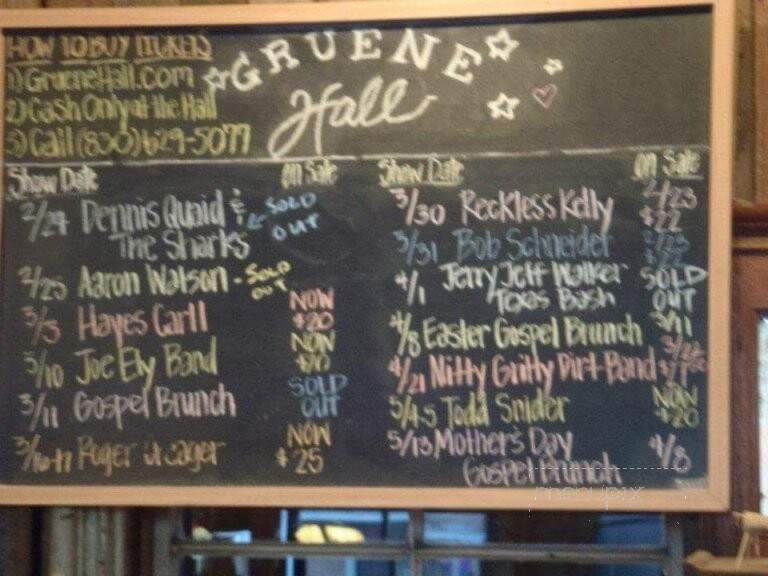 HOW TO BUY TICKETS
1) GrueneHall.com
2) Cash Only at the Hall
3) Call (830) 629-5077
GRUENE
Hall
Show Date On Sale
2/24 Dennis Quaid & SOLD OUT
The Sharks
2/25 Aaron Watson - SOLD OUT
3/3 Hayes Carll NOW $20
3/10 Joe Ely Band NOW
3/11 Gospel Brunch SOLD OUT
3/16-17 Roger Creager NOW $25
Show Date On Sale
3/30 Reckless Kelly 2/23 $22
3/31 Bob Schneider 2/23
4/1 Jerry Jeff Walker SOLD
Texas Bash OUT
4/8 Easter Gospel Brunch 3/11
4/21 Nitty Gritty Dirt Band
5/4-5 Todd Snider NOW $20
5/13 Mother's Day 4/8
Gospel Brunch
menupix